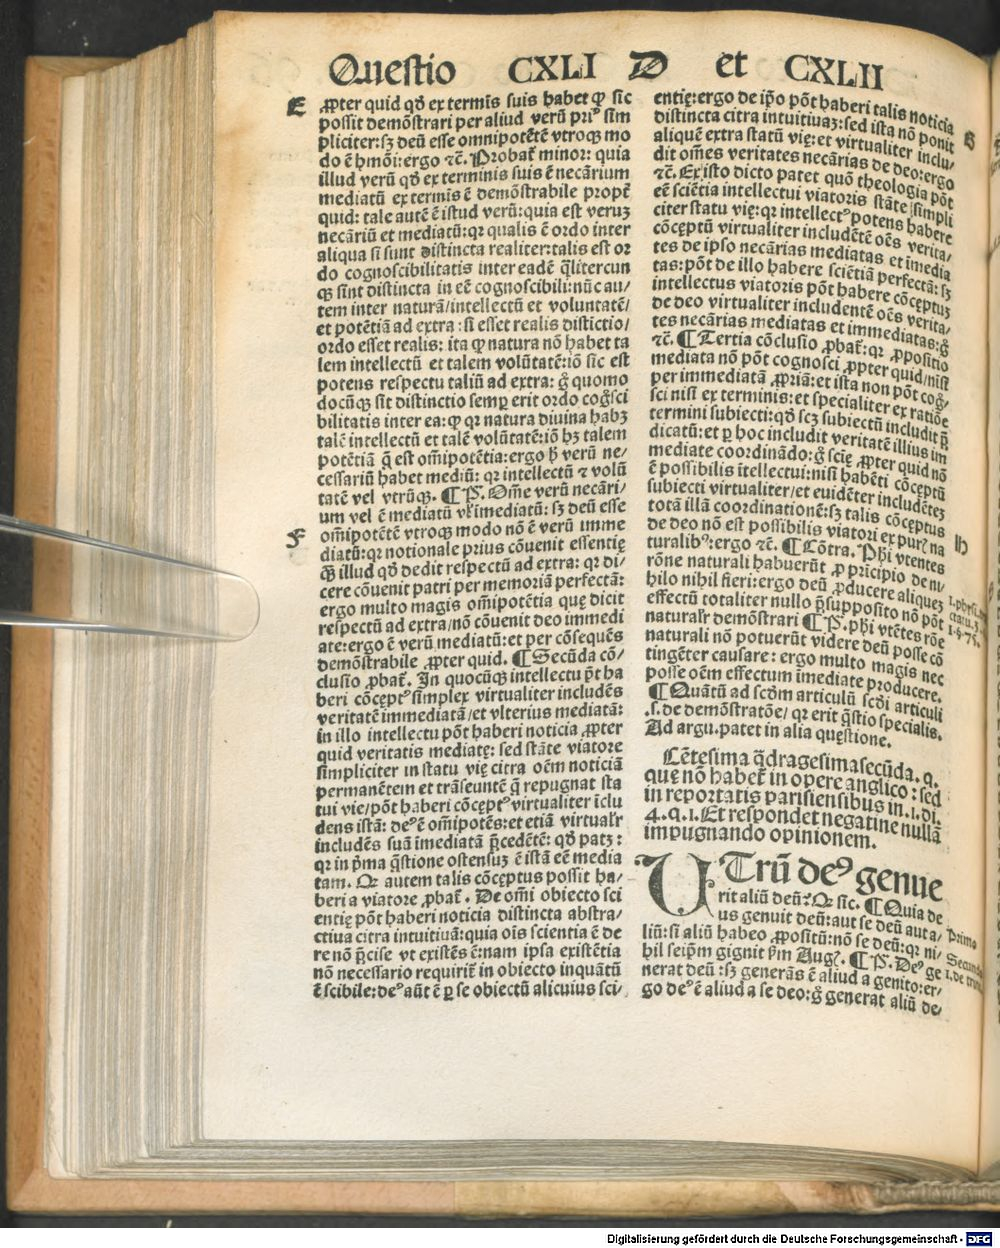 Questio CXLI D et CXLII
E
ꝓpter quid qđ ex termīs suis habet ꝙ sic
possit demōstrari per aliud verū priꝰ sim
pliciter: sꝫ deū esse omnipotētē vtroqꝫ mo
do ē hmōi: ergo ⁊c̄. Probat̄ minor: quia
illud verū qđ ex terminis suis ē necārium
mediatū ex termīs ē demōstrabile propt̄
quid: tale autē ē istud verū: quia est veruꝫ
necāriū et mediatū: qꝛ qualis ē ordo inter
aliqua si sunt distincta realiter: talis est or
do cognoscibilitatis inter eadē q̄litercun
qꝫ sint distincta in eē cognoscibili: nūc au/
tem inter naturā/intellectū et voluntatē/
et potētiā ad extra: si esset realis distictio/
ordo esset realis: ita ꝙ natura nō habet ta
lem intellectū et talem volūtatē: iō sic est
potens respectu taliū ad extra: ḡ quomo
docūqꝫ sit distinctio semꝑ erit ordo cog̊sci
bilitatis inter ea: ꝙ qꝛ natura diuina habꝫ
talē intellectū et talē volūtatē: iō hꝫ talem
potētiā q̄ est om̄ipotētia: ergo ħ verū ne/
cessariū habet mediū: qꝛ intellectū ⁊ volū
tatē vel vtrūqꝫ. ¶ P̄. Om̄e verū necāri/
um vel ē mediatū vl̓ imediatū: sꝫ deū esse
F
om̄ipotētē vtroqꝫ modo nō ē verū imme
diatū: qꝛ notionale prius cōuenit essentię
qꝫ̄ illud qđ dedit respectū ad extra: qꝛ di/
cere cōuenit patri per memoriā perfectā:
ergo multo magis om̄ipotētia quę dicit
respectū ad extra/nō cōuenit deo immedi
ate: ergo ē verū mediatū: et per cōsequēs
demōstrabile ꝓpter quid. ¶ Secūda cō/
clusio ꝓbat̄. In quocūqꝫ intellectu p̄t ha
beri cōcęptꝰ simplex virtualiter includēs
veritatē immediatā/et vlterius mediatā:
in illo intellectu pōt haberi noticia ꝓpter
quid veritatis mediatę: sed stāte viatore
simpliciter in statu vię citra oēm noticiā
permanētem et trāseuntē q̄ repugnat sta
tui vie/pōt haberi cōcęptꝰ virtualiter īclu
dens istā: deꝰ ē om̄ipotēs: et etiā virtual̓r
includēs suā imediatā p̄cedētē: qđ patꝫ:
qꝛ in p̄ma q̄stione ostensuꝫ ē istā eē media
tam. Qꝛ autem talis cōceptus possit ha/
beri a viatore ꝓbat̄. De om̄i obiecto sci
entię pōt haberi noticia distincta abstra/
ctiua citra intuitiuā: quia oīs scientia ē de
re nō p̄cise vt existēs ē: nam ipsa existētia
nō necessario requirit̄ in obiecto inquātū
ē scibile: deꝰ aūt ē ꝑ se obiectū alicuius sci/
entię: ergo de ip̄o pōt haberi talis noticia
distincta citra intuitiuaꝫ: sed ista nō ponit
G
aliquē extra statū vię: et virtualiter inclu/
dit om̄es veritates necārias de deo: ergo
⁊c̄. Ex isto dicto patet quō theologia pōt
eē sciētia intellectui viatoris stāte simpli
citer statu vię: qꝛ intellectꝰ potens habere
cōcęptū virtualiter includētē oēs verita/
tes de ipso necārias mediatas et īmedia
tas: pōt de illo habere sciētiā perfectā: sꝫ
intellectus viatoris pōt habere cōcęptuꝫ
de deo virtualiter includentē oēs verita/
tes necārias mediatas et immediatas: ḡ
⁊c̄. ¶ Tertia cōclusio ꝓbat̄: qꝛ ꝓpositio
mediata nō pōt cognosci ꝓpter quid/nisi
per immediatā ꝓpriā: et ista non pōt cog̊/
sci nisi ex terminis: et specialiter ex ratiōe
termini subiecti: qđ scꝫ subiectū includit p̄
dicatū: et ꝑ hoc includit veritatē illius im
mediate coordinādo: ḡ scię ꝓpter quid nō
ē possibilis ītellectui: nisi habēti cōcęptū
subiecti virtualiter/et euidēter includēteꝫ
totā illā coordinationē: sꝫ talis cōcęptus
de deo nō est possibilis viatori ex purꝭ na
H
turalibꝰ: ergo ⁊c̄. ¶ Cōtra. Phi vtentes
rōne naturali habuerūt ꝓ prīcipio de ni/
hilo nihil fieri: ergo deū ꝓducere aliqueꝫ
effectū totaliter nullo p̄supposito nō pōt
natural̓r demōstrari ¶ P̄. phi vtētes rōe
naturali nō potuerūt videre deū posse cō
tingēter causare: ergo multo magis nec
posse oēm effectum īmediate producere.
¶ Quātū ad scđm articulū scđi articuli
.s. de demōstratōe/ qꝛ erit q̄stio specialis.
Ad argu. patet in alia quęstione.
Cētęsima q̄dragesimasecūda. q.
quę nō habet̄ in opere anglico: sed
in reportatis parisiensibus in .1. di.
4. q. 1. Et respondet negatine nullā
impugnando opinionem.
UTrū deꝰ genue
rit aliū deū? Qꝛ sic. ¶ Quia de
us genuit deū: aut se deū aut a/
Primo
liū: si aliū habeo ꝓpositū: nō se deū: qꝛ ni/
hil seip̄m gignit ẜm Augꝭ. ¶ P̄. Deꝰ ge
nerat deū: sꝫ generās ē aliud a genito: er/
go deꝰ ē aliud a se deo: ḡ generat aliū de/
Digitalisierung gefördert durch die Deutsche Forschungsgemeinschaft - DFG